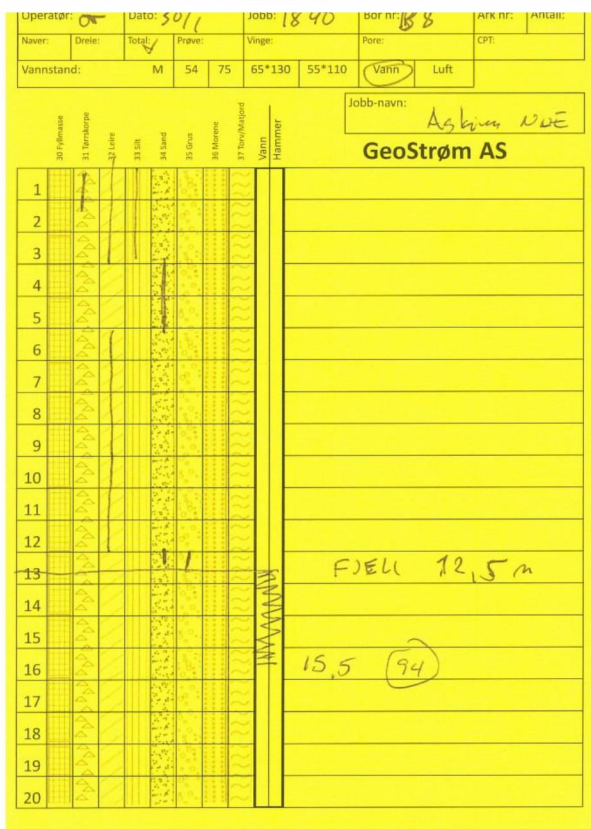 Operatør: Dato: 30/1 Jobb: 1840 Bor nr: B8 Ark nr: Antall:
Naver: Dreie: Total: Prøve: Vinge: Pore: CPT:
Vannstand: M 54 75 65*130 55*110 Vann Luft
Jobb-navn:
GeoStrøm AS
30 Fyllmasse 31 Tørrskorpe 32 Leire 33 Silt 34 Sand 35 Grus 36 Morene 37 Torv/Matjord Vann Hammer
1
2
3
4
5
6
7
8
9
10
11
12
13 FJELL 12,5 m
14
15
16 15,5 94
17
18
19
20